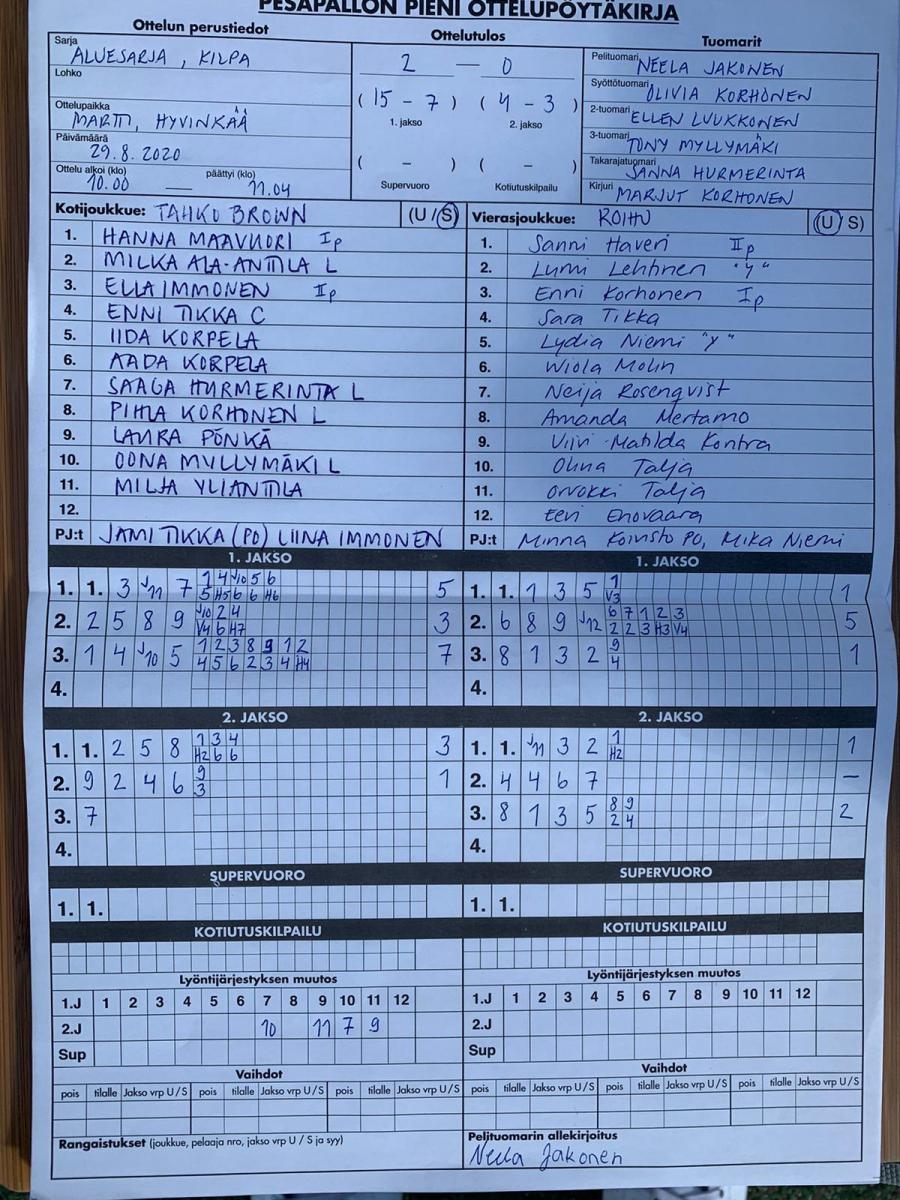 PESÄPALLON PIENI OTTELUPÖYTÄKIRJA
Ottelun perustiedot
Sarja
ALUESARJA, KILPA
Lohko
Ottelupaikka
MARTTI, HYVINKÄÄ
Päivämäärä
29.8.2020
Ottelu alkoi (klo) päättyi (klo)
10.00 — 11.04
Ottelutulos
2 — 0
(15 - 7) (4 - 3)
1. jakso 2. jakso
( - ) ( - )
Supervuoro Kotiutuskilpailu
Tuomarit
Pelituomari NEELA JAKONEN
Syöttötuomari OLIVIA KORHONEN
2-tuomari ELLEN LUUKKONEN
3-tuomari TONY MYLLYMÄKI
Takarajatuomari SANNA HURMERINTA
Kirjuri MARJUT KORHONEN
Kotijoukkue: TAHKO BROWN (U / S)
1. HANNA MAAVUORI Ip
2. MILKA ALA-ANTTILA L
3. ELLA IMMONEN IIp
4. ENNI TIKKA C
5. IIDA KORPELA
6. AADA KORPELA
7. SAAGA HURMERINTA L
8. PIHLA KORHONEN L
9. LAURA PÖNKÄ
10. OONA MYLLYMÄKI L
11. MILJA YLIANTTILA
12.
PJ:t JAMI TIKKA (PO) LIINA IMMONEN
Vierasjoukkue: ROIHU (U / S)
1. Sanni Haveri IIp
2. Lumi Lehtinen "y"
3. Enni Korhonen Ip
4. Sara Tikka
5. Lydia Niemi "y"
6. Wiola Molin
7. Neija Rosenqvist
8. Amanda Mertamo
9. Viivi-Matilda Kontra
10. Olina Talja
11. Orvokki Talja
12. Eevi Enovaara
PJ:t Minna Koivisto PO, Mika Niemi
1. JAKSO
1. 1. 3 J11 7 1 4 J10 5 6 5
5 H5 6 6 H6
2. 2 5 8 9 J10 2 4 3
V4 6 H7
3. 1 4 J10 5 1 2 3 8 9 1 2 7
4 5 6 2 3 4 H4
4.
1. JAKSO
1. 1. 1 3 5 1 1
V3
2. 6 8 9 J12 6 7 1 2 3 5
2 2 3 H3 V4
3. 8 1 3 2 9 1
4
4.
2. JAKSO
1. 1. 2 5 8 1 3 4 3
H2 6 6
2. 9 2 4 6 9 1
3
3. 7
4.
2. JAKSO
1. 1. J11 3 2 1 1
H2
2. 4 4 6 7 —
3. 8 1 3 5 8 9 2
2 4
4.
SUPERVUORO
1. 1.
SUPERVUORO
1. 1.
KOTIUTUSKILPAILU
KOTIUTUSKILPAILU
Lyöntijärjestyksen muutos
1.J 1 2 3 4 5 6 7 8 9 10 11 12
2.J 10 11 7 9
Sup
Lyöntijärjestyksen muutos
1.J 1 2 3 4 5 6 7 8 9 10 11 12
2.J
Sup
Vaihdot
pois tilalle Jakso vrp U / S pois tilalle Jakso vrp U / S pois tilalle Jakso vrp U / S
Vaihdot
pois tilalle Jakso vrp U / S pois tilalle Jakso vrp U / S pois tilalle Jakso vrp U / S
Rangaistukset (joukkue, pelaaja nro, jakso vrp U / S ja syy)
Pelituomarin allekirjoitus
Neela Jakonen